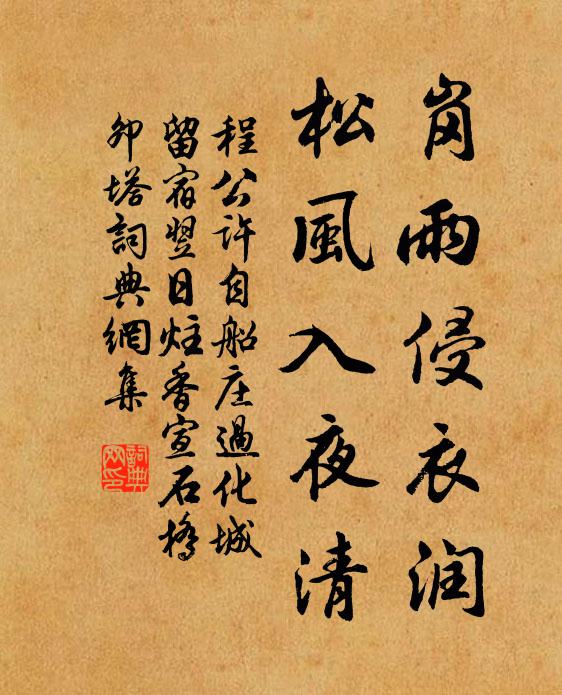 岗雨侵衣润
松風入夜清
程公许自船庄過化城
留宿翌日炷香宣石橋
卯塔詞典網集
詞典
网印